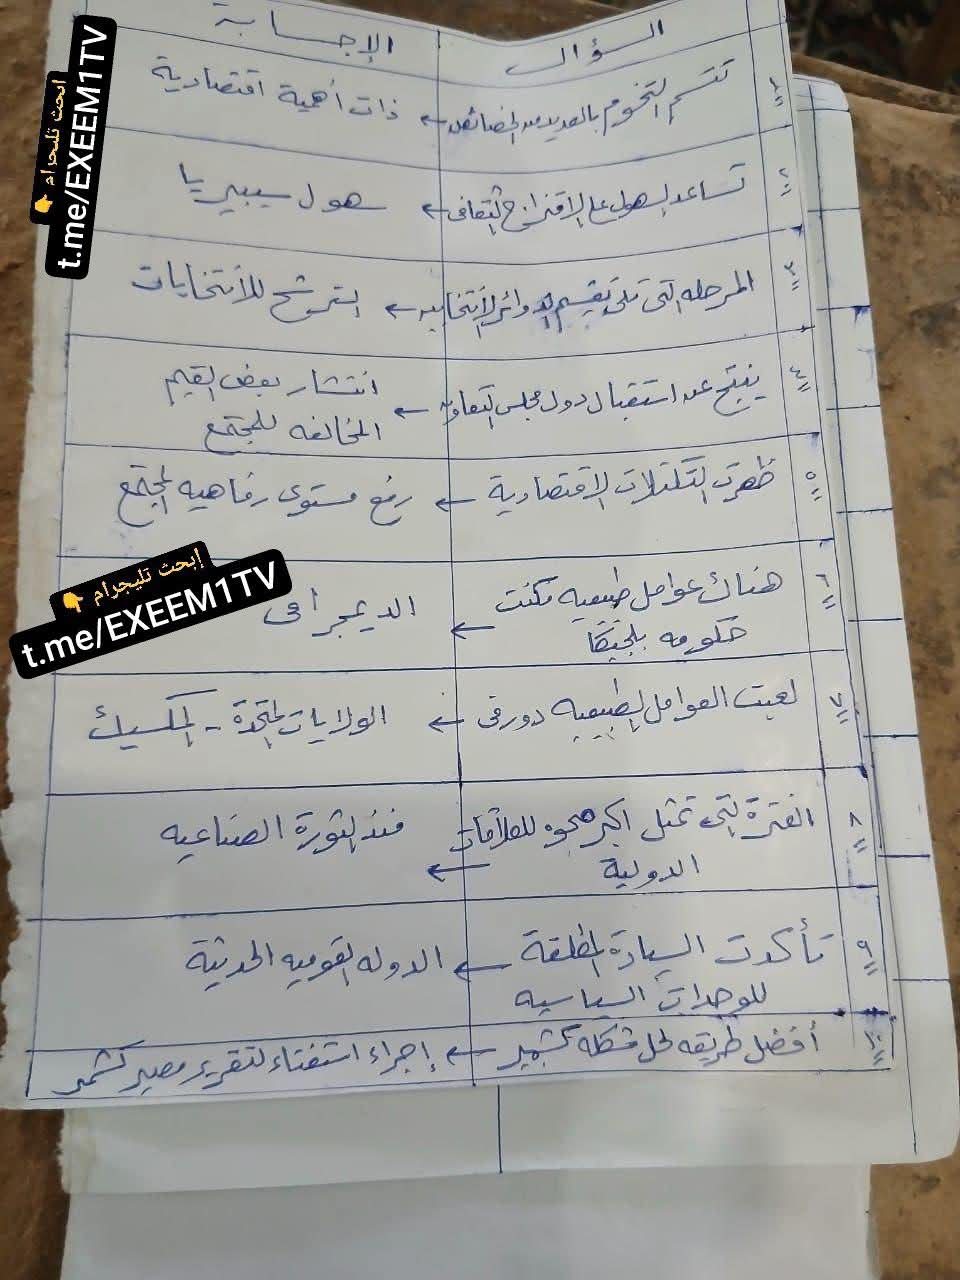 السؤال
الإجابة
١
تتسم التخوم بالعديد من الخصائص ← ذات أهمية اقتصادية
٢
تساعد السهول على الإقتران الثقافى ← سهول سيبيريا
٣
المرحله التى تلى تقسيم الدوائر الأنتخابيه ← الترشح للأنتخابات
٤
ينتج عن استقبال دول مجلس التعاون ← انتشار بعض القيم
المخالفه للمجتمع
٥
ظهرت التكتلات الاقتصادية ← رفع مستوى رفاهيه المجتمع
٦
هناك عوامل طبيعيه مكنت
حكومه بلجيكا ← الديمجرافى
٧
لعبت العوامل الطبيعيه دور فى ← الولايات المتحدة - المكسيك
٨
الفترة التى تمثل اكبر للعلاقات
الدولية ← منذ الثورة الصناعيه
٩
تأكدت السيادة المطلقة
للوحدات السياسيه ← الدوله القوميه الحديثة
١٠
أفضل طريقه لحل مشكله كشمير ← إجراء استفتاء لتقرير مصير كشمير
ابحث تليجرام 👇
t.me/EXEEM1TV
إبحث تليجرام 👇
t.me/EXEEM1TV